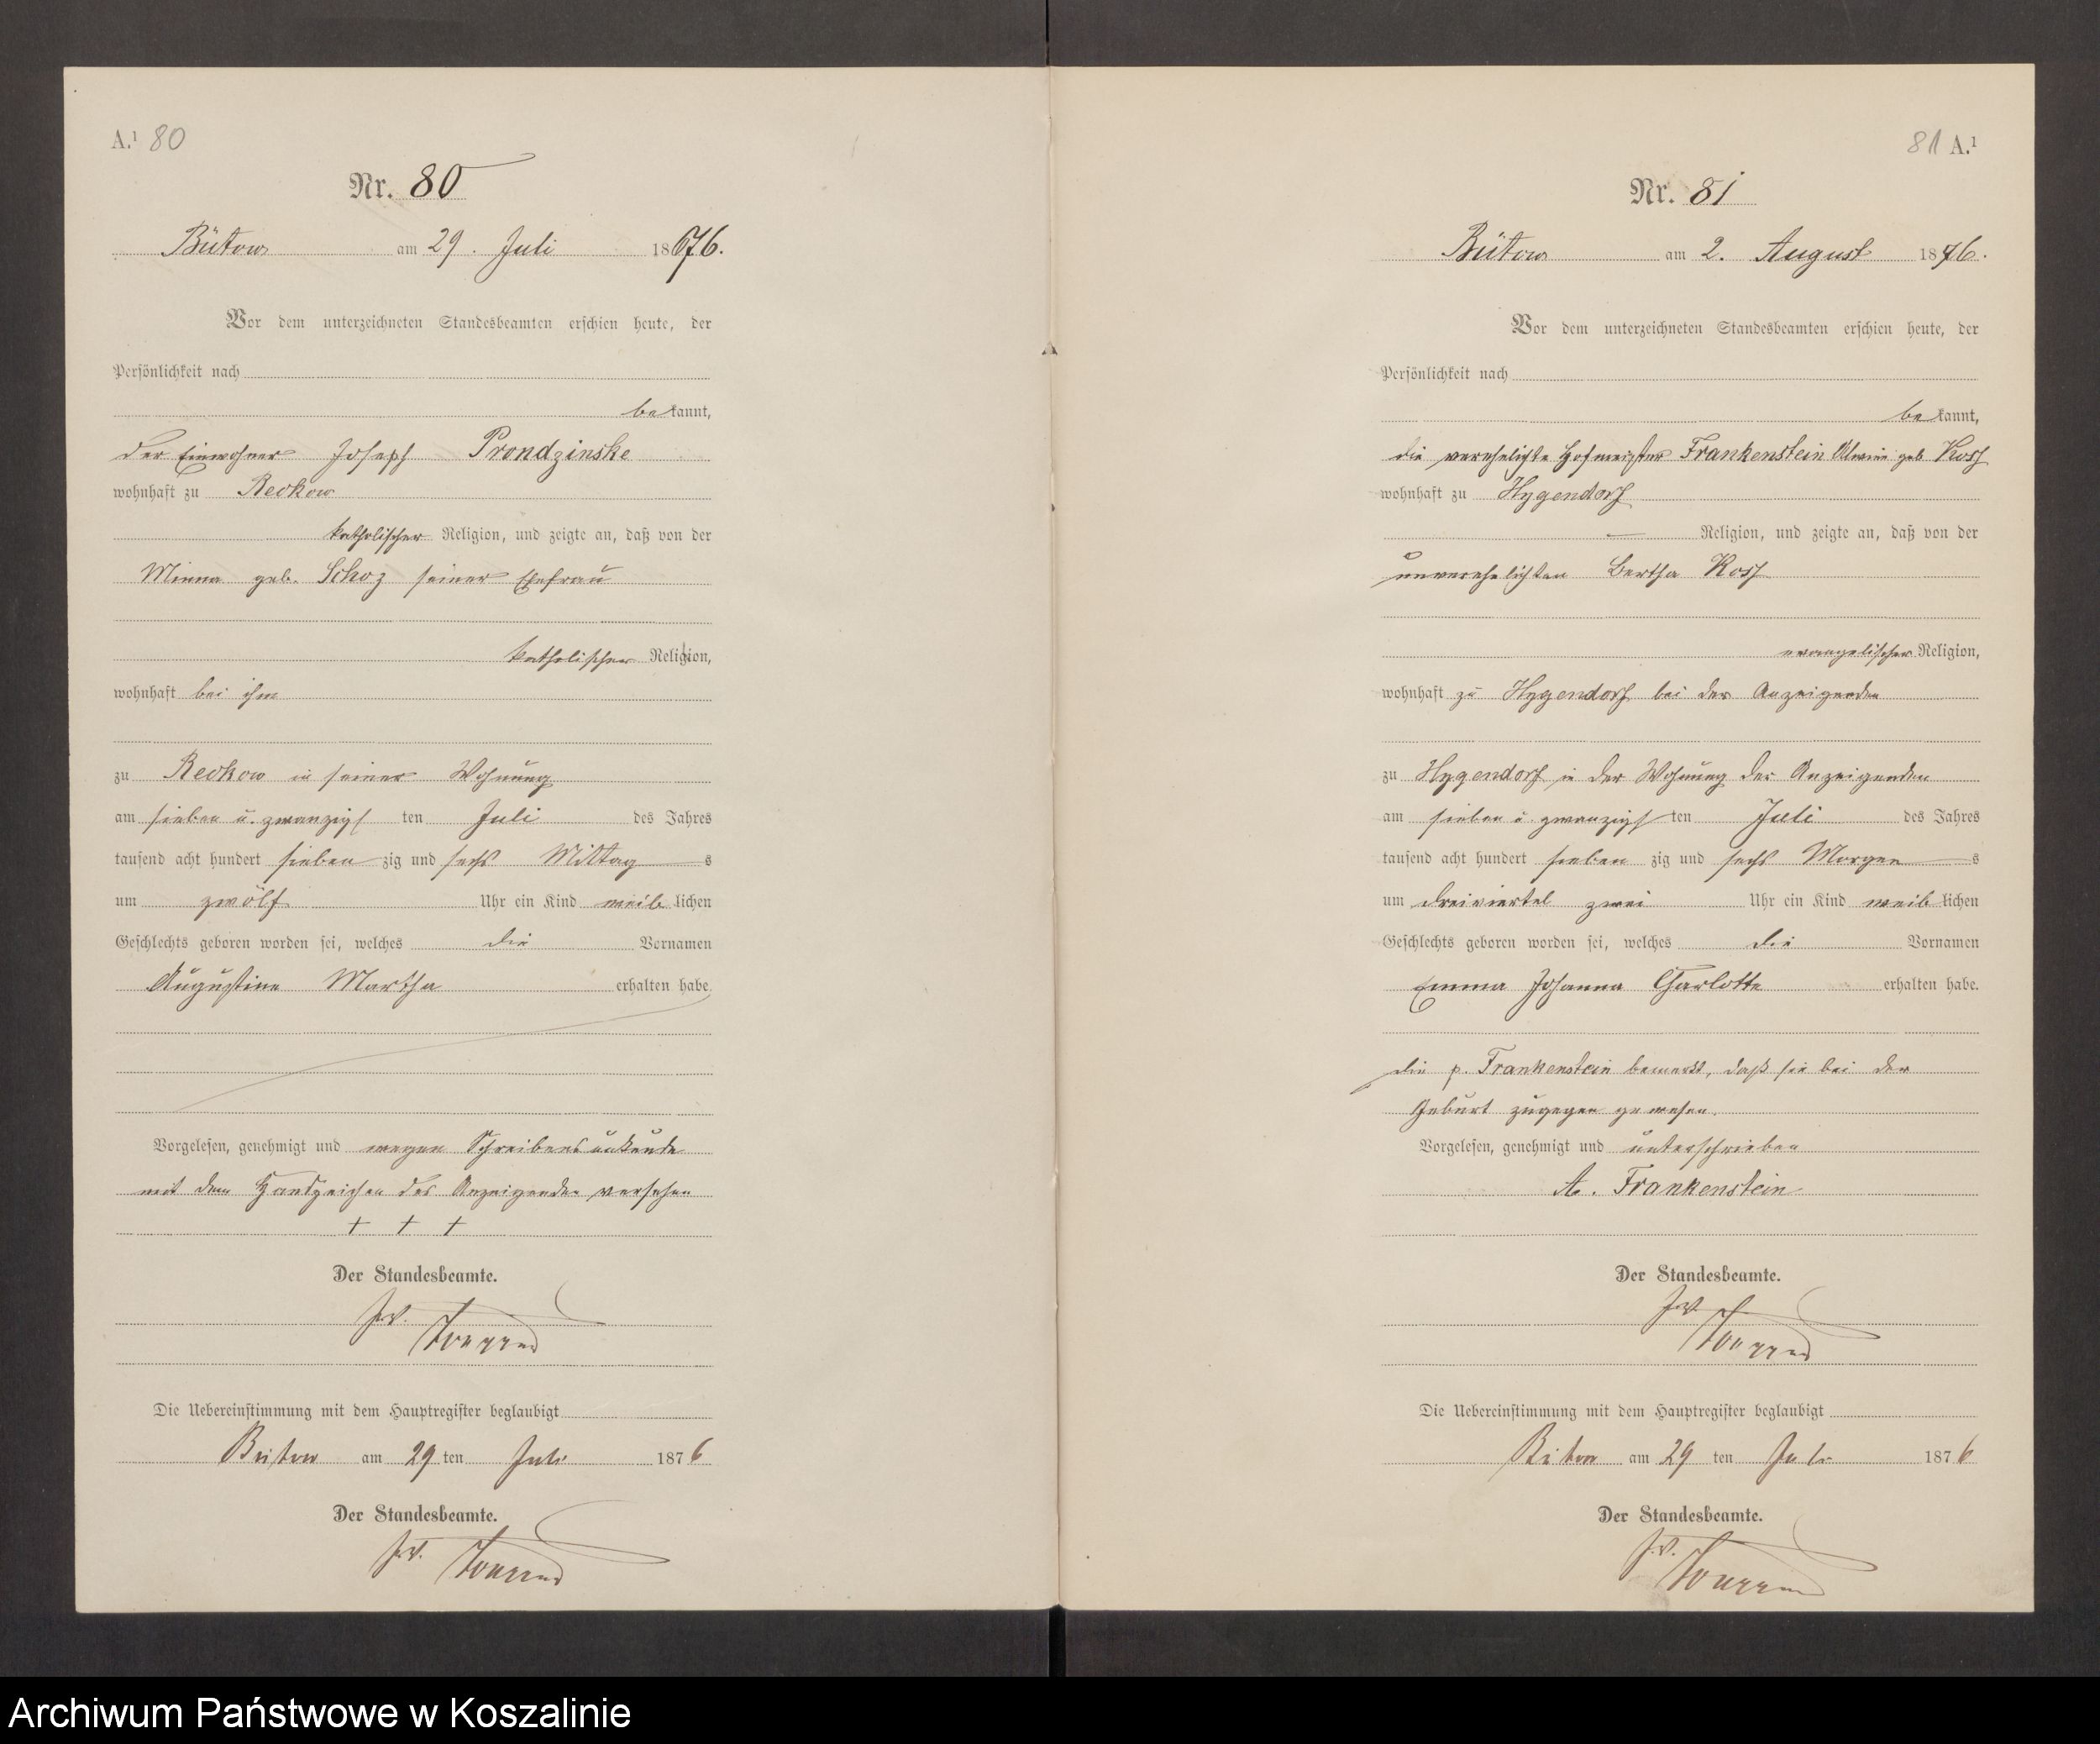 A.¹ 80
Nr. 80
Bütow am 29. Juli 1876.
Vor dem unterzeichneten Standesbeamten erschien heute, der
Persönlichkeit nach
bekannt,
der Einwohner Joseph Prondzinske
wohnhaft zu Reckow
katholischer Religion, und zeigte an, daß von der
Minna geb. Schoz seiner Ehefrau
katholischer Religion,
wohnhaft bei ihm
zu Reckow in seiner Wohnung
am sieben u. zwanzigsten Juli des Jahres
tausend acht hundert siebenzig und sechs Mittags
um zwölf Uhr ein Kind weiblichen
Geschlechts geboren worden sei, welches die Vornamen
Augustine Martha erhalten habe
Vorgelesen, genehmigt und wegen Schreibensunkunde
mit dem Handzeichen des Anzeigenden versehen
+ + +
Der Standesbeamte.
J.V.
Die Uebereinstimmung mit dem Hauptregister beglaubigt
Bütow am 29 ten Juli 1876
Der Standesbeamte.
J.V.
81 A.¹
Nr. 81
Bütow am 2. August 1876.
Vor dem unterzeichneten Standesbeamten erschien heute, der
Persönlichkeit nach
bekannt,
die verehelichte Hofmeister Frankenstein Alwine geb. Kosch
wohnhaft zu Hygendorf
— Religion, und zeigte an, daß von der
unverehelichten Bertha Kosch
evangelischer Religion,
wohnhaft zu Hygendorf bei der Anzeigenden
zu Hygendorf in der Wohnung der Anzeigenden
am sieben u. zwanzigsten Juli des Jahres
tausend acht hundert siebenzig und sechs Morgens
um dreiviertel zwei Uhr ein Kind weiblichen
Geschlechts geboren worden sei, welches die Vornamen
Emma Johanna Charlotte erhalten habe.
die p. Frankenstein bemerkt, daß sie bei der
Geburt zugegen gewesen.
Vorgelesen, genehmigt und unterschrieben
A. Frankenstein
Der Standesbeamte.
J.V.
Die Uebereinstimmung mit dem Hauptregister beglaubigt
Bütow am 29 ten Juli 1876
Der Standesbeamte.
J.V.
Archiwum Państwowe w Koszalinie